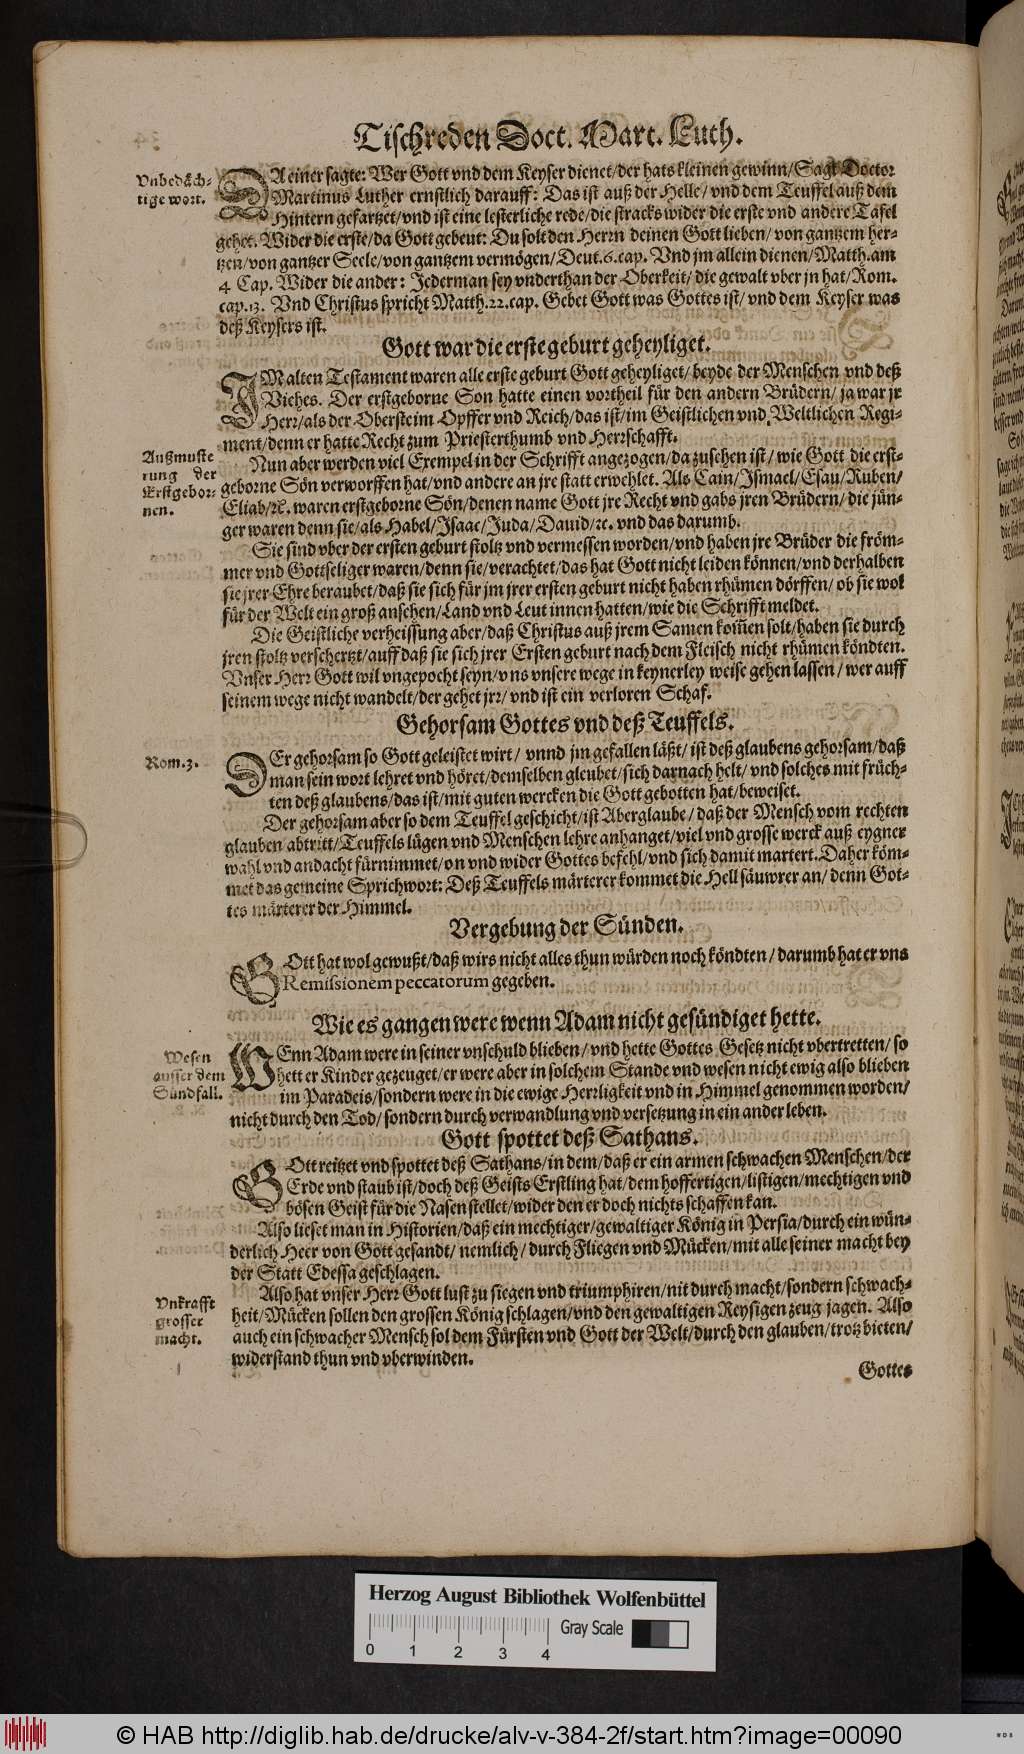 Tischreden Doct. Mart. Luth.
Vnbedäch-
tige wort.
DA einer sagte: Wer Gott vnd dem Keyser dienet/ der hats kleinen gewinn/ Sagt Doctor
Martinus Luther ernstlich darauff: Das ist auß der Helle/ vnd dem Teuffel auß dem
Hintern gefartzet/ vnd ist eine lesterliche rede/ die stracks wider die erste vnd andere Tafel
gehet. Wider die erste/ da Gott gebeut: Du solt den Herrn deinen Gott lieben/ von gantzem her-
tzen/ von gantzer Seele/ von gantzem vermögen/ Deut. 6. cap. Vnd jm allein dienen/ Matth. am
4 Cap. Wider die ander: Jederman sey vnderthan der Oberkeit/ die gewalt vber jn hat/ Rom.
cap. 13. Vnd Christus spricht Matth. 22. cap. Gebet Gott was Gottes ist/ vnd dem Keyser was
deß Keysers ist.
Gott war die erste geburt geheyliget.
IM alten Testament waren alle erste geburt Gott geheyliget/ beyde der Menschen vnd deß
Viehes. Der erstgeborne Son hatte einen vortheil für den andern Brüdern/ ja war jr
Herr/ als der Oberste im Opffer vnd Reich/ das ist/ im Geistlichen vnd Weltlichen Regi-
ment/ denn er hatte Recht zum Priesterthumb vnd Herrschafft.
Außmuste
rung der
Erstgebor-
nen.
Nun aber werden viel Exempel in der Schrifft angezogen/ da zusehen ist/ wie Gott die erst-
geborne Sön verworffen hat/ vnd andere an jre statt erwehlet. Als Cain/ Ismael/ Esau/ Ruben/
Eliab/ ꝛc. waren erstgeborne Sön/ denen name Gott jre Recht vnd gabs jren Brüdern/ die jün-
ger waren denn sie/ als Habel/ Isaac/ Juda/ Dauid/ ꝛc. vnd das darumb.
Sie sind vber der ersten geburt stoltz vnd vermessen worden/ vnd haben jre Brüder die fröm-
mer vnd Gottseliger waren/ denn sie/ verachtet/ das hat Gott nicht leiden können/ vnd derhalben
sie jrer Ehre beraubet/ daß sie sich für jm jrer ersten geburt nicht haben rhümen dörffen/ ob sie wol
für der Welt ein groß ansehen/ Land vnd Leut innen hatten/ wie die Schrifft meldet.
Die Geistliche verheissung aber/ daß Christus auß jrem Samen kom̃en solt/ haben sie durch
jren stoltz verschertzt/ auff daß sie sich jrer Ersten geburt nach dem Fleisch nicht rhümen köndten.
Vnser Herr Gott wil vngepocht seyn/ vns vnsere wege in keynerley weise gehen lassen/ wer auff
seinem wege nicht wandelt/ der gehet jrr/ vnd ist ein verloren Schaf.
Gehorsam Gottes vnd deß Teuffels.
Rom. 3.
DEr gehorsam so Gott geleistet wirt/ vnnd jm gefallen läßt/ ist deß glaubens gehorsam/ daß
man sein wort lehret vnd höret/ demselben gleubet/ sich darnach helt/ vnd solches mit früch-
ten deß glaubens/ das ist/ mit guten wercken die Gott gebotten hat/ beweiset.
Der gehorsam aber so dem Teuffel geschicht/ ist Aberglaube/ daß der Mensch vom rechten
glauben abtritt/ Teuffels lügen vnd Menschen lehre anhanget/ viel vnd grosse werck auß eygner
wahl vnd andacht fürnimmet/ on vnd wider Gottes befehl/ vnd sich damit martert. Daher köm-
met das gemeine Sprichwort: Deß Teuffels märterer kommet die Hell säuwrer an/ denn Got-
tes märterer der Himmel.
Vergebung der Sünden.
GOtt hat wol gewußt/ daß wirs nicht alles thun würden noch köndten/ darumb hat er vns
Remissionem peccatorum gegeben.
Wie es gangen were wenn Adam nicht gesündiget hette.
Wesen
ausser dem
Sündfall.
WEnn Adam were in seiner vnschuld blieben/ vnd hette Gottes Gesetz nicht vbertretten/ so
hett er Kinder gezeuget/ er were aber in solchem Stande vnd wesen nicht ewig also blieben
im Paradeis/ sondern were in die ewige Herrligkeit vnd in Himmel genommen worden/
nicht durch den Tod/ sondern durch verwandlung vnd versetzung in ein ander leben.
Gott spottet deß Sathans.
GOtt reitzet vnd spottet deß Sathans/ in dem/ daß er ein armen schwachen Menschen/ der
Erde vnd staub ist/ doch deß Geists Erstling hat/ dem hoffertigen/ listigen/ mechtigen vnd
bösen Geist für die Nasen stellet/ wider den er doch nichts schaffen kan.
Also lieset man in Historien/ daß ein mechtiger/ gewaltiger König in Persia/ durch ein wün-
derlich Heer von Gott gesandt/ nemlich/ durch Fliegen vnd Mücken/ mit alle seiner macht bey
der Statt Edessa geschlagen.
Vnkrafft
grosser
macht.
Also hat vnser Herr Gott lust zu siegen vnd triumphiren/ nit durch macht/ sondern schwach-
heit/ Mücken sollen den grossen König schlagen/ vnd den gewaltigen Reysigen zeug jagen. Also
auch ein schwacher Mensch sol dem Fürsten vnd Gott der Welt/ durch den glauben/ trotz bieten/
widerstand thun vnd vberwinden.
Gottes
Herzog August Bibliothek Wolfenbüttel
Gray Scale
0 1 2 3 4
© HAB http://diglib.hab.de/drucke/alv-v-384-2f/start.htm?image=00090